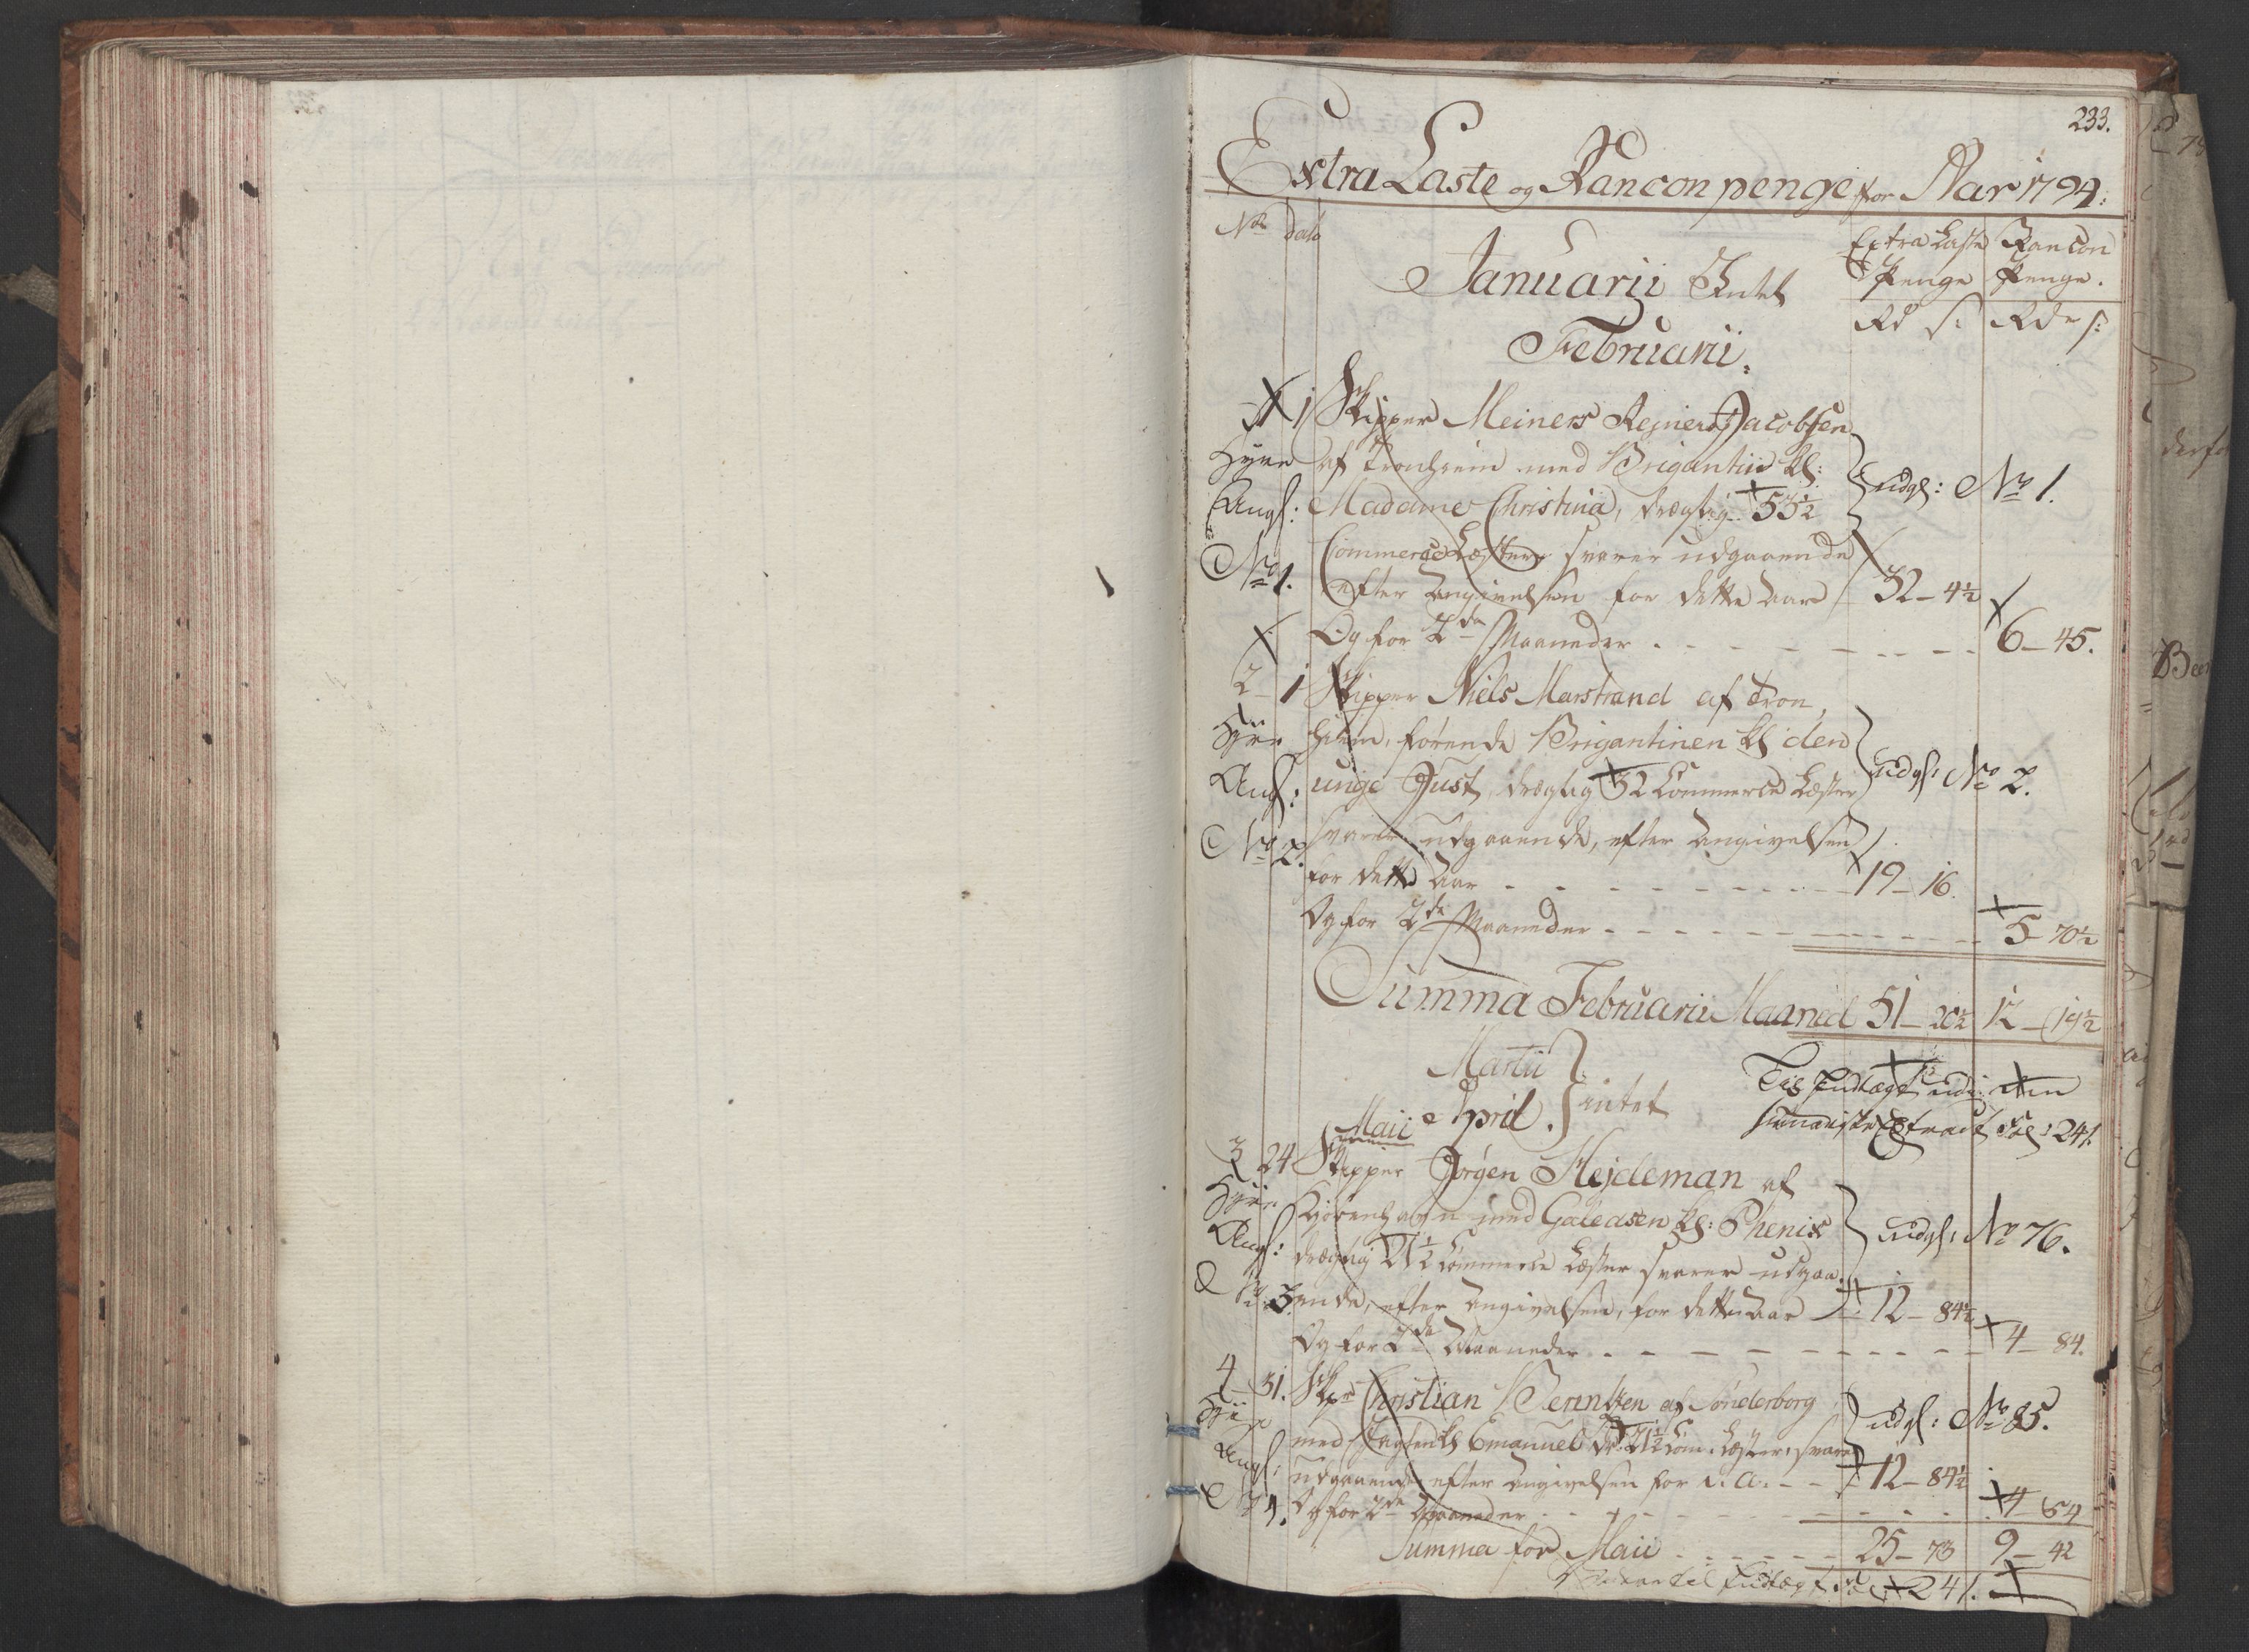 233.
Extra Laste og Rancon penge for Aar 1794.
No dato
Extra Laste Penge
Rancon Penge.
Januarii Intet
Rd s: Rdr s:
Februarii.
1 1 Skipper Meiners Rejners Jacobsen
Hyre af Tronhiem med Brigantin kl:
Angl: Madame Christina, drægtig 53½ udgl: No 1.
No 1. Commerce Læster svarer udgaaende
efter Angivelsen for dette Aar 32 - 4½
Og for 2de Maaneder 6 - 45.
2 - 1 Skipper Niels Marstrand af Tron,
hiem, førende Brigantinen kl den
Angl: unge Just, drægtig 32 Commerce Læster udgl: No 2.
No 2. svarer udgaaende, efter Angivelsen
for dette Aar 19 - 16.
Og for 2de Maaneder 5 - 70½
Summa Februarii Maaned 51 - 20½ 12 - 19½
Martii
April. intet
241.
Maii
3 24 Skipper Jørgen Hejdeman af
Kiøbenhavn med Galeasen kl: Phenix
Angl: drægtig 21½ Commerce Læster svarer udgaa- udgl: No 76.
No 3. ende, efter Angivelsen, for dette Aar 12 - 84½
Og for 2de Maaneder 4 - 84.
4 - 31. Skpr Christian Berintsen af Sønderborg
med Jagten kl Emanuel dr: 21½ Com. Læster, svarer udgl: No 85.
Angl: udgaaende efter Angivelsen for d: A: 12 - 84½
No 4. Og for 2de Maaneder 4 - 54
Summa for Maii 25 - 73 9 - 42
241.